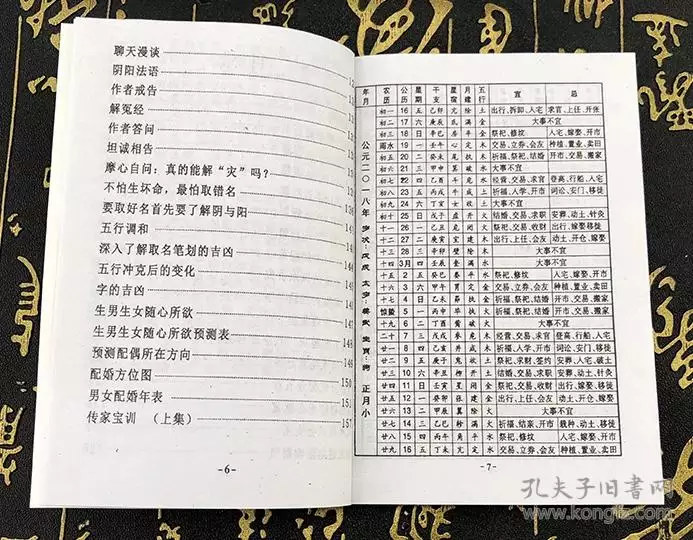 聊天漫谈
阴阳法语
作者戒告
解冤经
作者答问
坦诚相告
摩心自问：真的能解“灾”吗？
不怕生坏命，最怕取错名
要取好名首先要了解阴与阳
五行调和
深入了解取名笔划的吉凶 144
五行冲克后的变化
字的吉凶
生男生女随心所欲
生男生女随心所欲预测表 148
预测配偶所在方向 149
配婚方位图 150
男女配婚年表 151
传家宝训 （上集） 157
-6-
年月 农历 公历 星期 干支 星宿 月建 五行 宜 忌
公元二〇一八年 岁次：戊戌 太岁：姜武 生肖：狗 正月小
初一 16 五 己卯 亢 除 土 出行、拆卸、入宅 求官、上任、开张
初二 17 六 庚辰 氐 满 金 大事不宜
初三 18 日 辛巳 房 平 金 祭祀、修坟 入宅、嫁娶、开市
雨水 19 一 壬午 心 定 木 交易、立券、会友 种植、置业、卖田
初五 20 二 癸未 尾 执 木 祈福、祭祀、结婚 开市、交易、搬家
初六 21 三 甲申 箕 破 水 大事不宜
初七 22 四 乙酉 斗 危 水 经营、交易、求官 登高、行船、入宅
初八 23 五 丙戌 牛 成 土 祈福、入学、开市 词讼、安门、移徙
初九 24 六 丁亥 女 收 土 大事不宜
初十 25 日 戊子 虚 开 火 结婚、交易、求职 安葬、动土、针灸
十一 26 一 己丑 危 闭 火 祭祀、交易、收财 出行、嫁娶、移徙
十二 27 二 庚寅 室 建 木 出行、上任、会友 动土、开仓、嫁娶
十三 28 三 辛卯 壁 除 木 大事不宜
十四 3月 四 壬辰 奎 满 水 大事不宜
十五 2 五 癸巳 娄 平 水 祭祀、修坟 入宅、嫁娶、开市
十六 3 六 甲午 胃 定 金 交易、立券、会友 种植、置业、卖田
十七 4 日 乙未 昴 执 金 祈福、祭祀、结婚 开市、交易、搬家
惊蛰 5 一 丙申 毕 执 火 祈福、祭祀、结婚 开市、交易、搬家
十九 6 二 丁酉 觜 破 火 大事不宜
二十 7 三 戊戌 参 危 木 经营、交易、求官 登高、行船、入宅
廿一 8 四 己亥 井 成 木 祈福、入学、开市 词讼、安门、移徙
廿二 9 五 庚子 鬼 收 土 祭祀、求财、签约 安葬、入宅、破土
廿三 10 六 辛丑 柳 开 土 结婚、交易、求职 安葬、动土、针灸
廿四 11 日 壬寅 星 闭 金 祭祀、交易、收财 出行、嫁娶、移徙
廿五 12 一 癸卯 张 建 金 出行、上任、会友 动土、开仓、嫁娶
廿六 13 二 甲辰 翼 除 火 大事不宜
廿七 14 三 乙巳 轸 满 火 祈福、结亲、开市 栽种、动土、移徙
廿八 15 四 丙午 角 平 水 祭祀、修坟 入宅、嫁娶、开市
廿九 16 五 丁未 亢 定 水 交易、立券、会友 种植、置业、卖田
-7-
孔夫子旧书网
www.kongfz.com